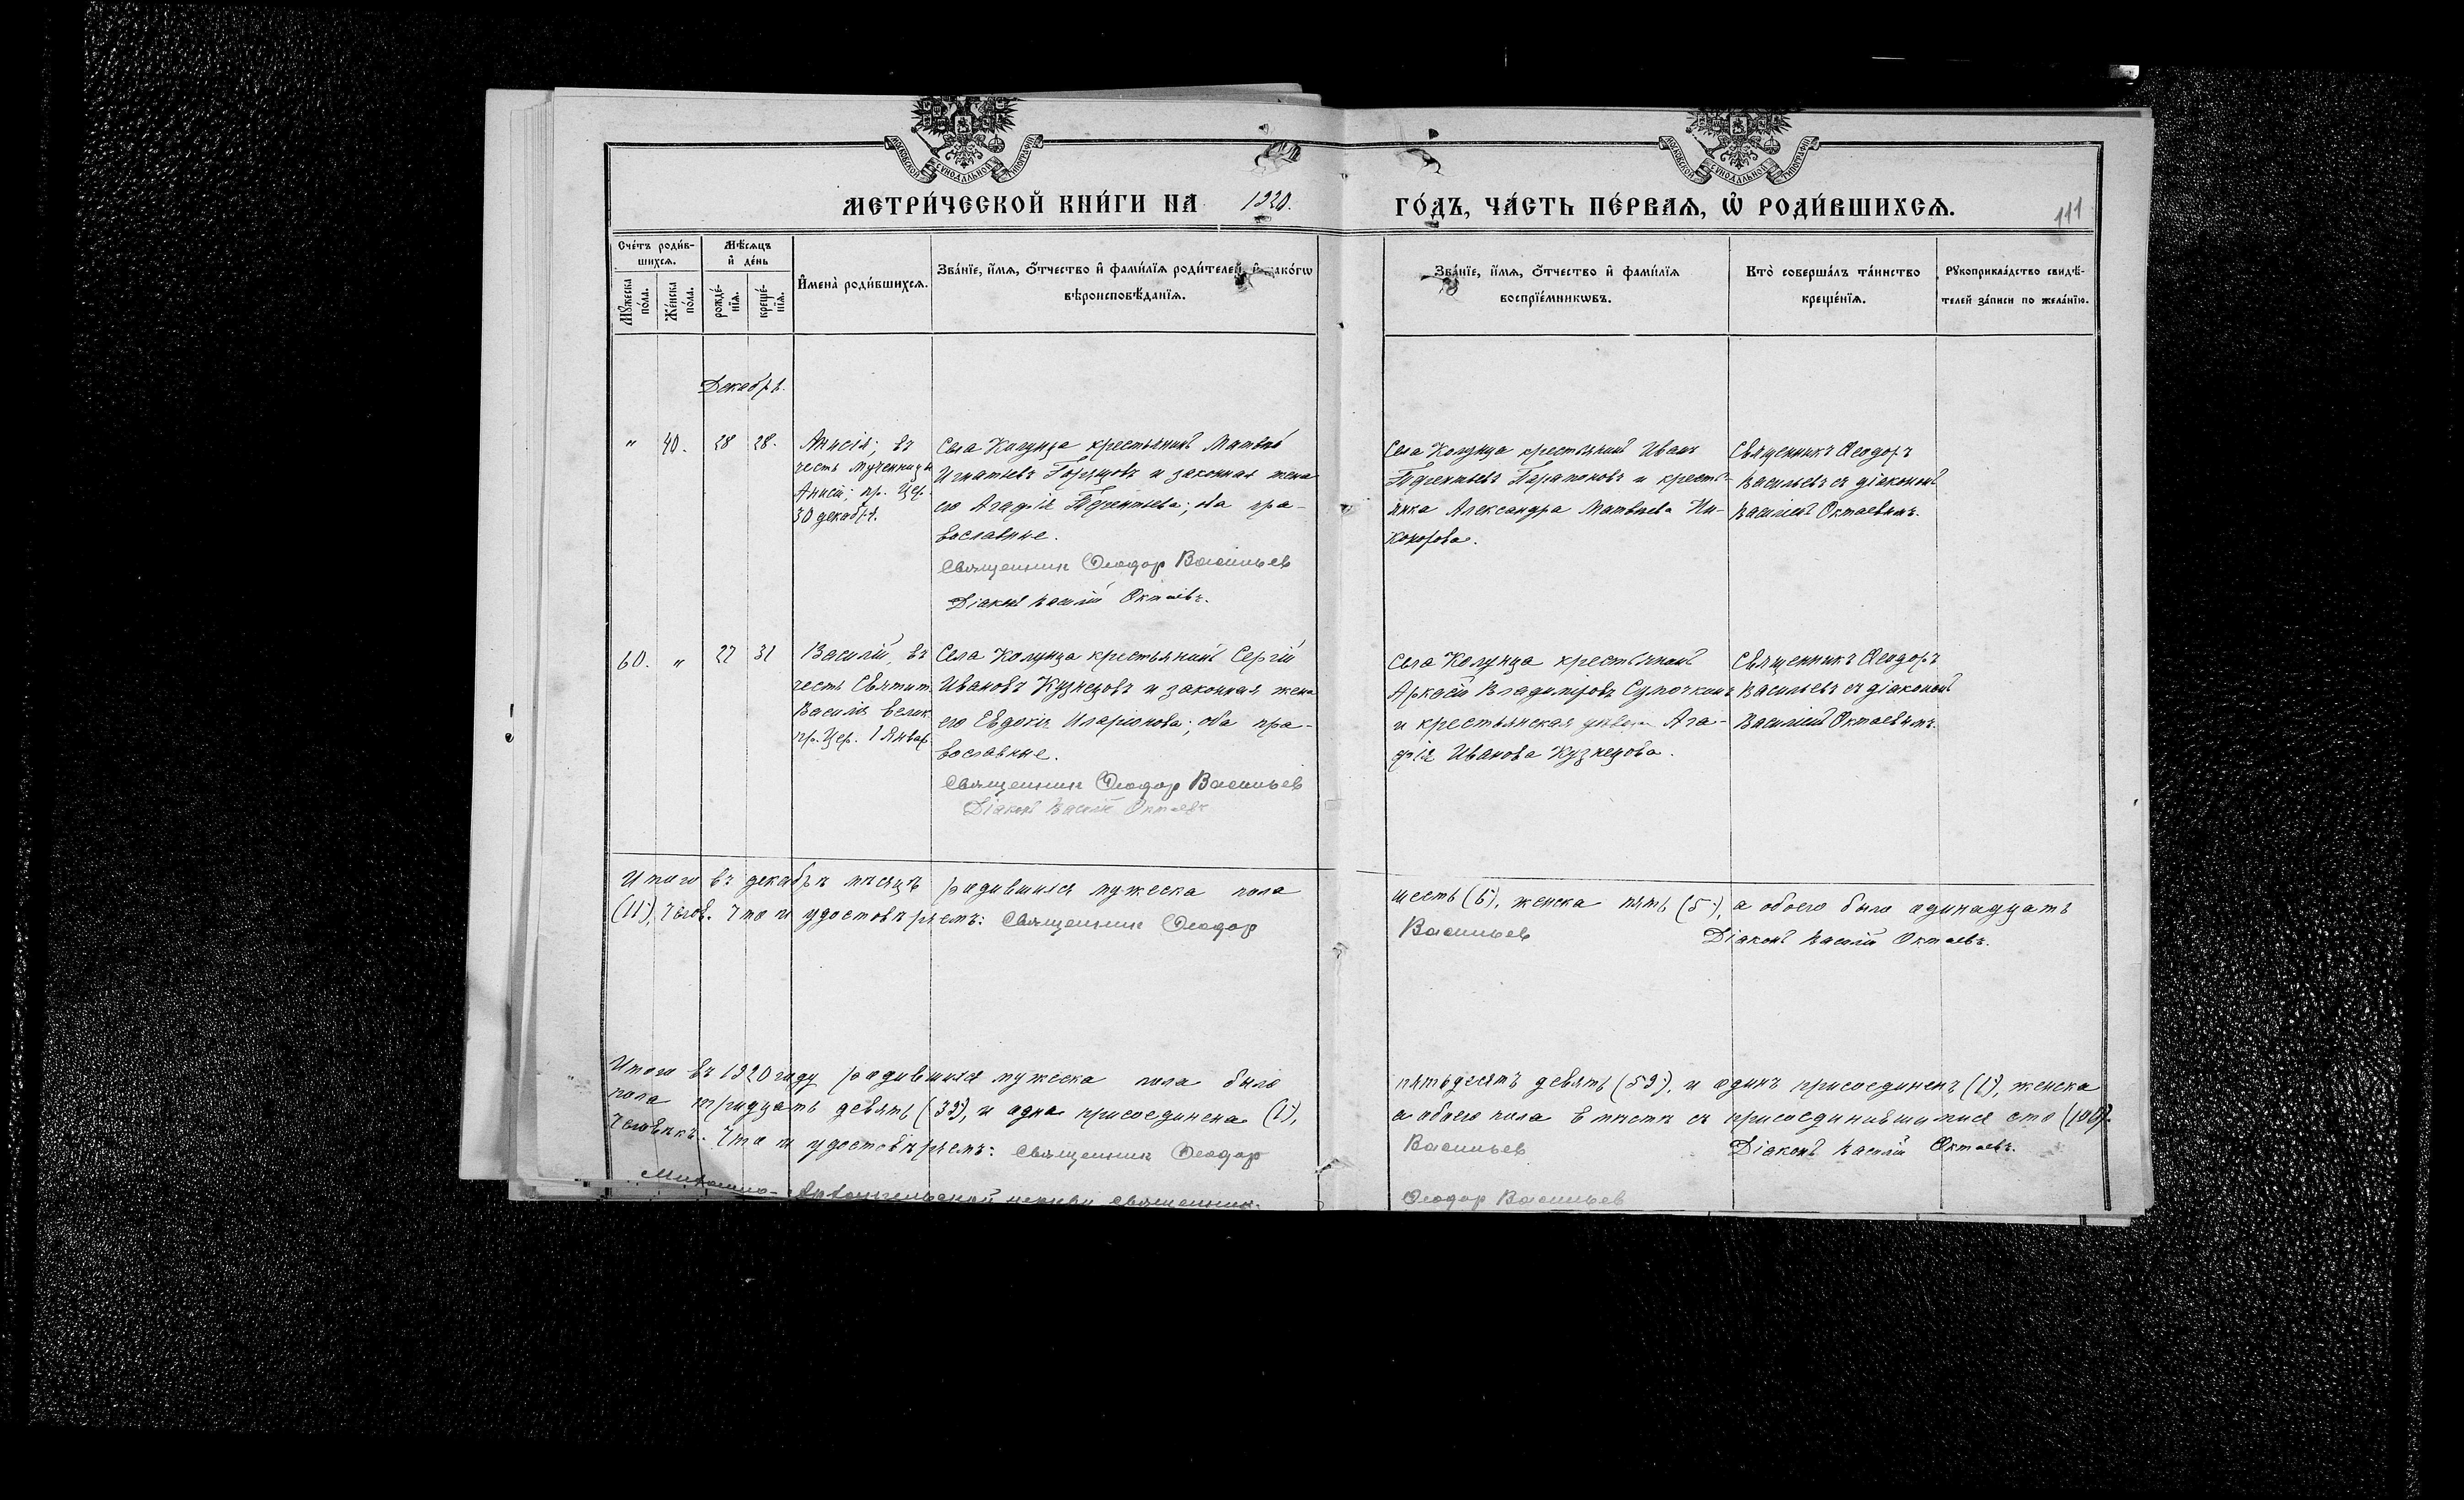 МОСКОВСКОЙ СѴНОДАЛЬНОЙ ТИПОГРАФІИ
МОСКОВСКОЙ СѴНОДАЛЬНОЙ ТИПОГРАФІИ
МЕТРИ́ЧЕСКОЙ КНИ́ГИ НА 1920. ГО́ДЪ, ЧА́СТЬ ПЕ́РВАѦ, Ѽ РОДИ́ВШИХСѦ.
111
Сче́тъ роди́в-
шихсѧ.
Мꙋ́жеска по́ла.
Же́нска по́ла.
Мѣ́сѧцъ
и҆ де́нь
рожде́-
нїѧ.
креще́-
нїѧ.
И҆мена̀ роди́вшихсѧ.
Зва́нїе, и҆́мѧ, ѻ҆́тчество и҆ фами́лїѧ роди́телей, и҆ како́гѡ
вѣроисповѣ́данїѧ.
Зва́нїе, и҆́мѧ, ѻ҆́тчество и҆ фами́лїѧ
воспрїе́мникѡвъ.
Кто̀ соверша́лъ та́инство
креще́нїѧ.
Рꙋкоприкла́дство свидѣ́-
телей за́писи по жела́нїю.
Декабрь.
" 40. 28 28.
Анисія; въ
честь мученицы
Анисіи; пр. Цер.
30 декабря.
Села Колунца крестьянинъ Матвѣй
Игнатьевъ и законная жена
его Агафія Терентьева; оба пра-
вославные.
Священник Феодор Васильев
Діаконъ Василій Октаевъ.
Села Колунца крестьянинъ Иванъ
Терентьевъ Парамоновъ и кресть-
янка Александра Матвѣева Ни-
конорова.
Священникъ Ѳеодоръ
Васильевъ съ діакономъ
Василіемъ Октаевымъ.
60. " 27 31
Василій, въ
честь Святит.
Василія Велик.
пр. Цер. 1 Январ.
Села Колунца крестьянинъ Сергій
Ивановъ Кузнецовъ и законная жена
его Евдокія Иларіонова; оба пра-
вославные.
Священник Феодор Васильев
Діаконъ Василій Октаевъ
Села Колунца крестьянинъ
Аркадій Владиміровъ Сумочкинъ
и крестьянская Ага-
фія Иванова Кузнецова.
Священникъ Ѳеодоръ
Васильевъ съ діакономъ
Василіемъ Октаевымъ.
Итого въ декабрѣ мѣсяцѣ родившихся мужеска пола шесть (6), женска пять (5), а обоего было одинадцать
(11), челов. Что и удостовѣряемъ: Священник Феодор Васильев Діаконъ Василій Октаевъ.
Итого въ 1920 году родившихся мужеска пола было пятьдесятъ девять (59), и одинъ присоединенъ (1), женска
пола тридцать девять (39), и одна присоединена (1), а обоего пола вмѣстѣ съ присоединившимися сто (100).
Человѣкъ. Что и удостовѣряемъ: Священник Феодор Васильев Діаконъ Василій Октаевъ.
Михаило-Архангельской церкви священник Феодор Васильев